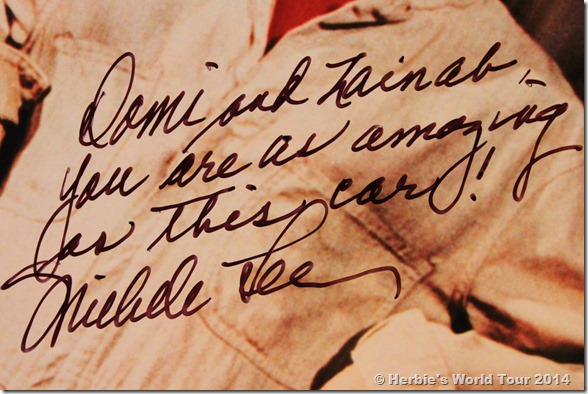 Domi and Zainab,
you are as amazing
as this car!
Michele Lee
© Herbie's World Tour 2014